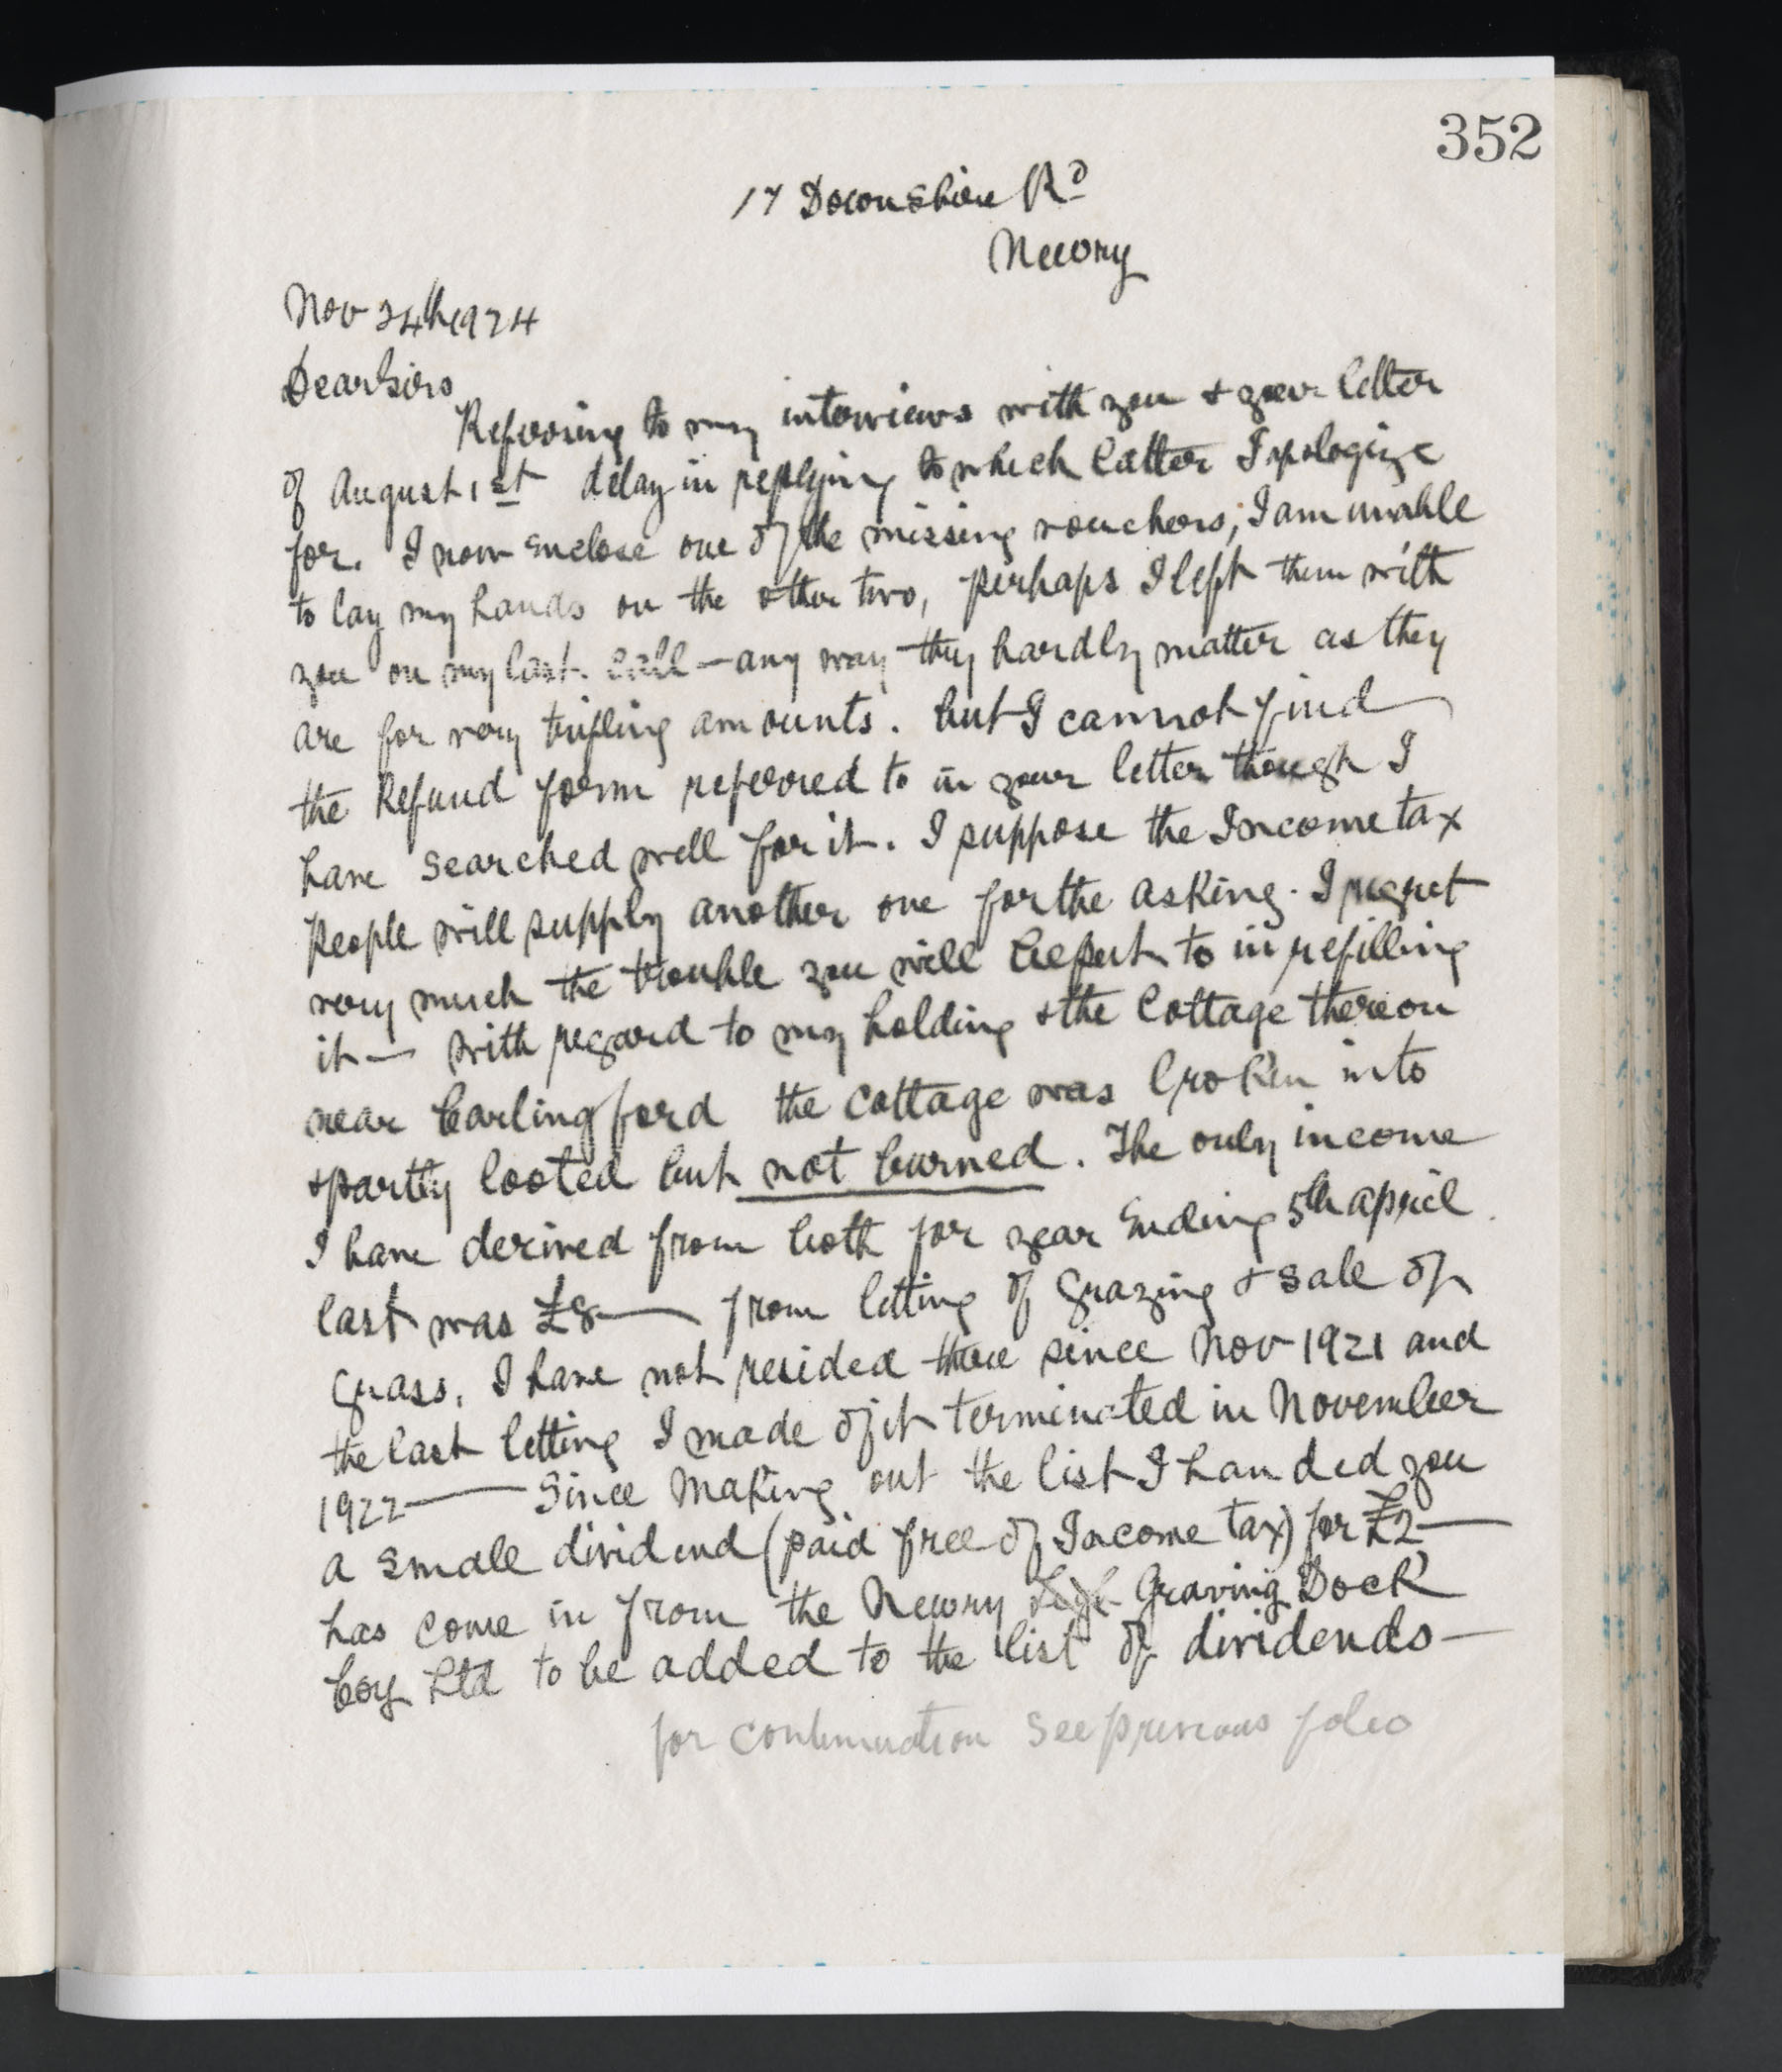 352
17 Downshire Rd
Newry
Nov 24th 1924
Dear Sirs
Referring to my interviews with you & your letter
of August 1st delay in replying to which latter I apologize
for. I now enclose one of the missing vouchers, I am unable
to lay my hands on the other two, perhaps I left them with
you on my last call — any way they hardly matter as they
are for very trifling amounts. but I cannot find
the Refund form referred to in your letter though I
have searched well for it. I suppose the Income tax
people will supply another one for the asking. I regret
very much the trouble you will be put to in refilling
it — with regard to my holding & the Cottage thereon
near Carlingford the cottage was broken into
& partly looted but not burned. The only income
I have derived from both for year Ending 5th april
last was £8 — from letting of grazing & sale of
grass. I have not resided there since Nov 1921 and
the last letting I made of it terminated in November
1922 — Since Making out the list I handed you
a small dividend (paid free of Income tax) for £2 —
has come in from the Newry Graving Dock
Coy Ltd to be added to the list of dividends —
for continuation see previous folio